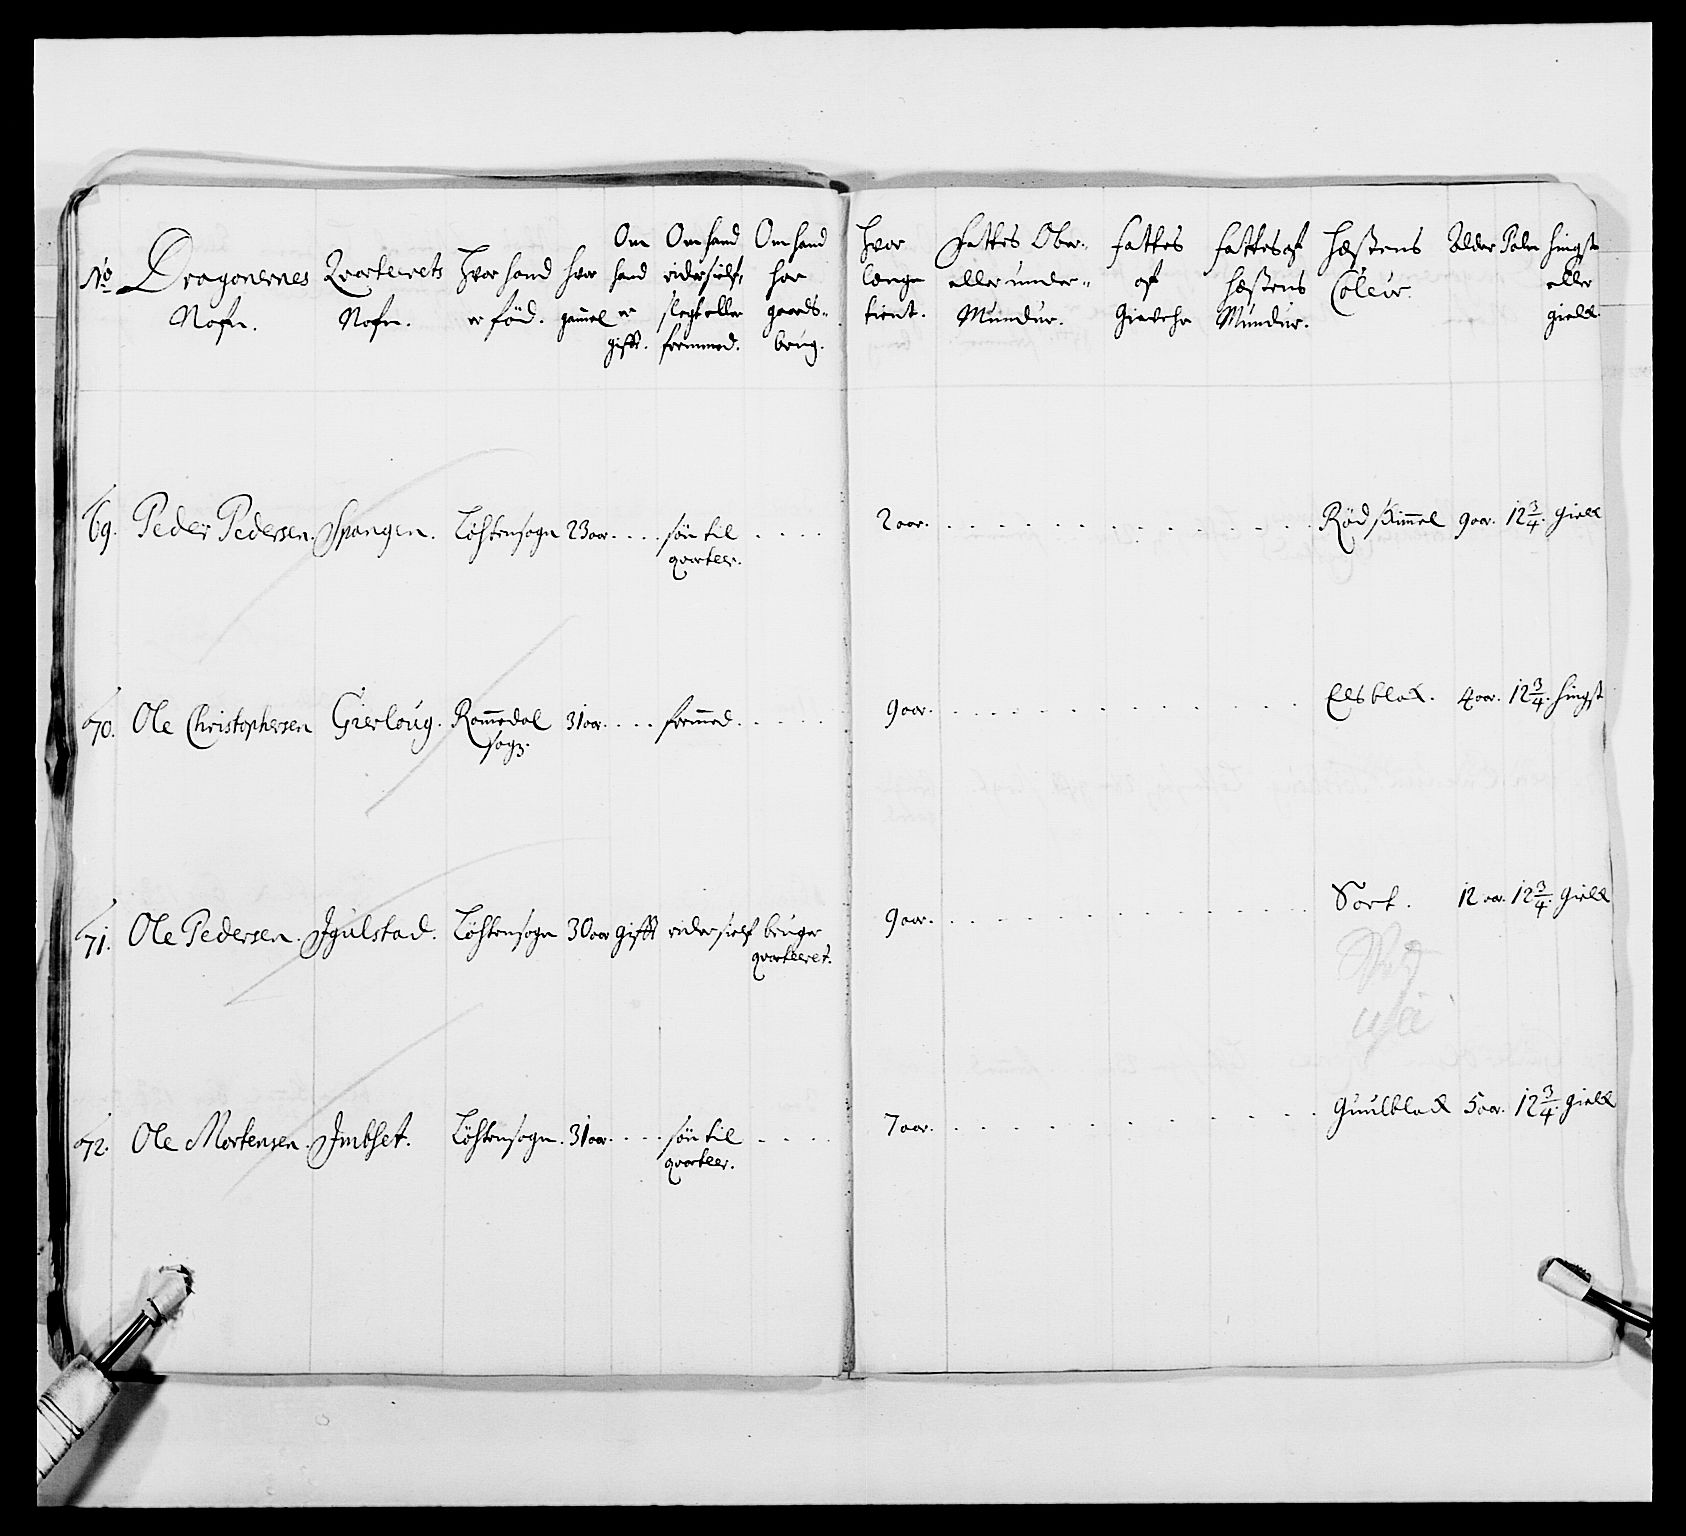 No Dragonernes Nafn. Qvarteerets Nafn. Hvor hand er född. hvor gammel Om hand er gifft. Om hand ridersielf, slegt eller fremmed. Om hand har gaards-brug. Hvor længe tient. Fattes Ober- eller under- Mundur. Fattes af Giwehr Fattes af hæstens Mundur. Hæstens Coleur. Alder Palm hingst eller gield.
69. Peder Pedersen. Spangen. Löhtensogn 23 aar. .... sön til qvarteer. .... 2 aar. .... Röd skimmel 9 aar. 12 3/4. gield
70. Ole Christophersen Gierloug. Rommedal sogn. 31 aar. .... fremmed. .... 9 aar. .... Elsblak. 4 aar. 12 3/4. hingst
71. Ole Pedersen. Jgulstad. Löhtensogn 30 aar gifft ridersielf bruger qvarteeret. 9 aar. .... Sort. 12 aar. 12 3/4. gield
72. Ole Mortensen. Jmbset. Löhtensogn. 31 aar. .... sön til qvarteer. .... 7 aar. .... Guulblak 5 aar. 12 3/4. gield